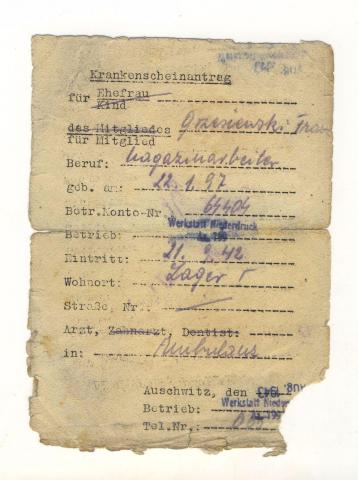 Krankenscheinantrag
für Ehefrau
Kind
des Mitgliedes
für Mitglied
Beruf: Magazinarbeiter
geb. am: 22.1.97
Betr.Konto-Nr. 64404
Werkstatt Niederdruck
Betrieb:
Eintritt: 21. 9. 42
Wohnort: Lager I
Straße, Nr.:
Arzt, Zahnarzt, Dentist:
in: Ambulanz
Auschwitz, den 1943
Betrieb: Werkstatt Nieder
Tel.Nr.: